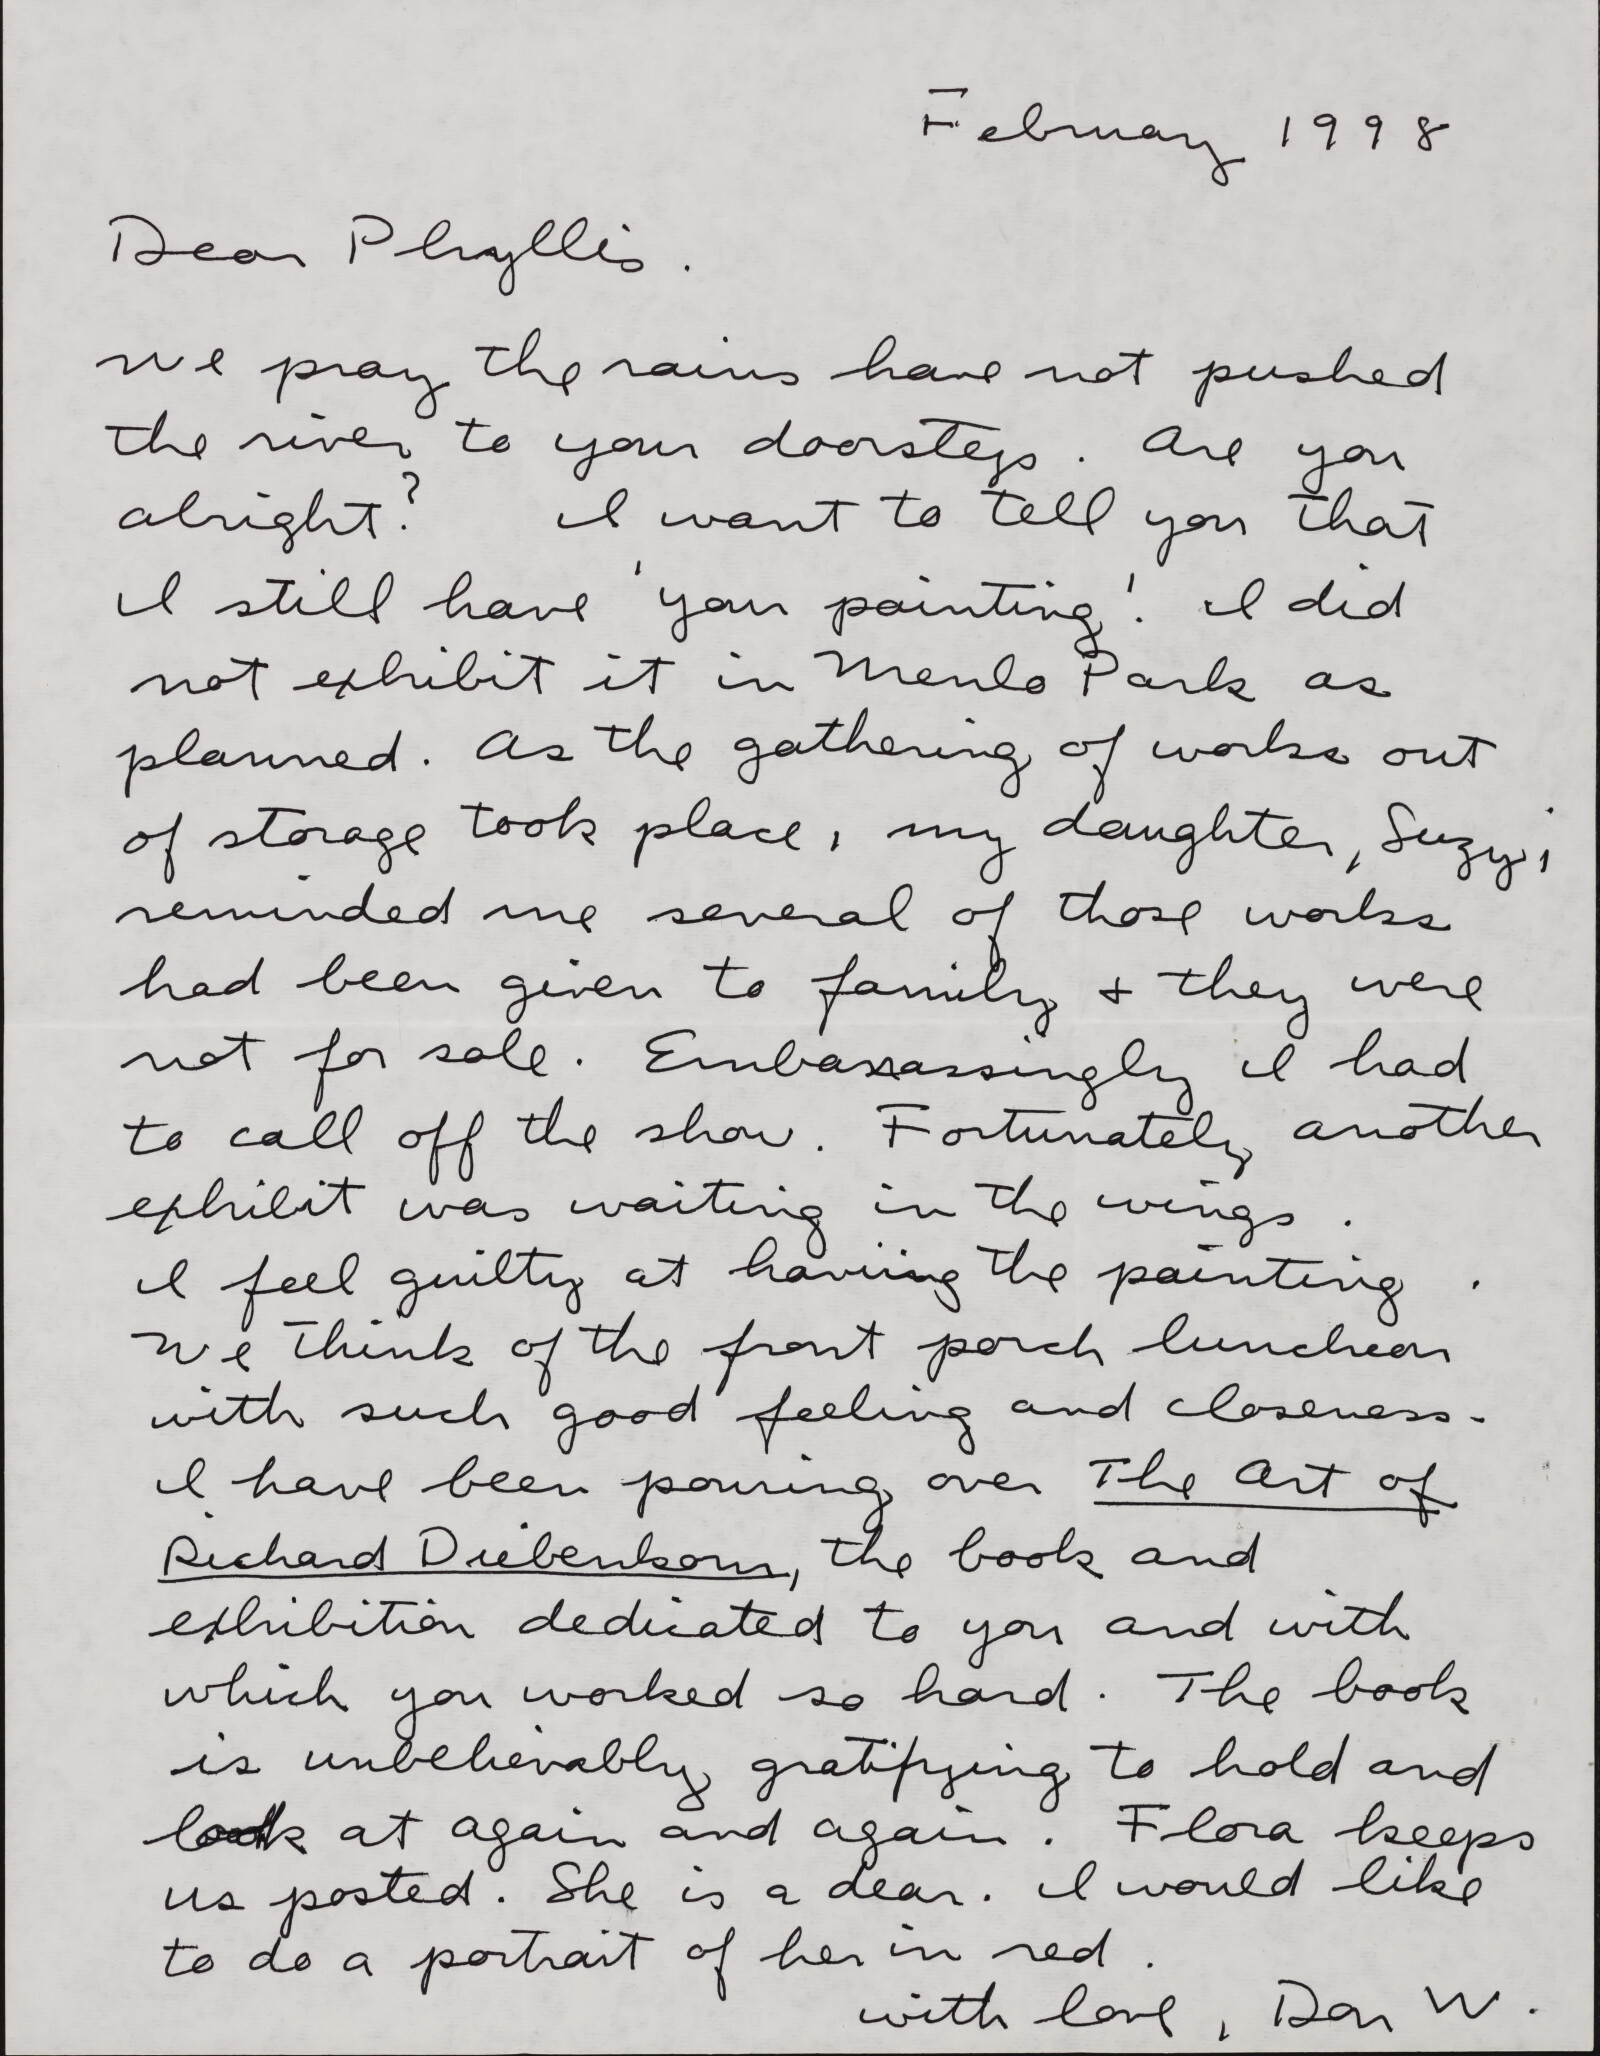 February 1998
Dear Phyllis.
We pray the rains have not pushed
the river to your doorsteps. Are you
alright? I want to tell you that
I still have 'your painting'. I did
not exhibit it in Menlo Park as
planned. As the gathering of works out
of storage took place, my daughter, Suzy,
reminded me several of those works
had been given to family + they were
not for sale. Embarrassingly I had
to call off the show. Fortunately another
exhibit was waiting in the wings.
I feel guilty at having the painting.
We think of the front porch luncheon
with such good feeling and closeness.
I have been pouring over The Art of
Richard Diebenkorn, the book and
exhibition dedicated to you and with
which you worked so hard. The book
is unbelievably gratifying to hold and
look at again and again. Flora keeps
us posted. She is a dear. I would like
to do a portrait of her in red.
with love, Don W.